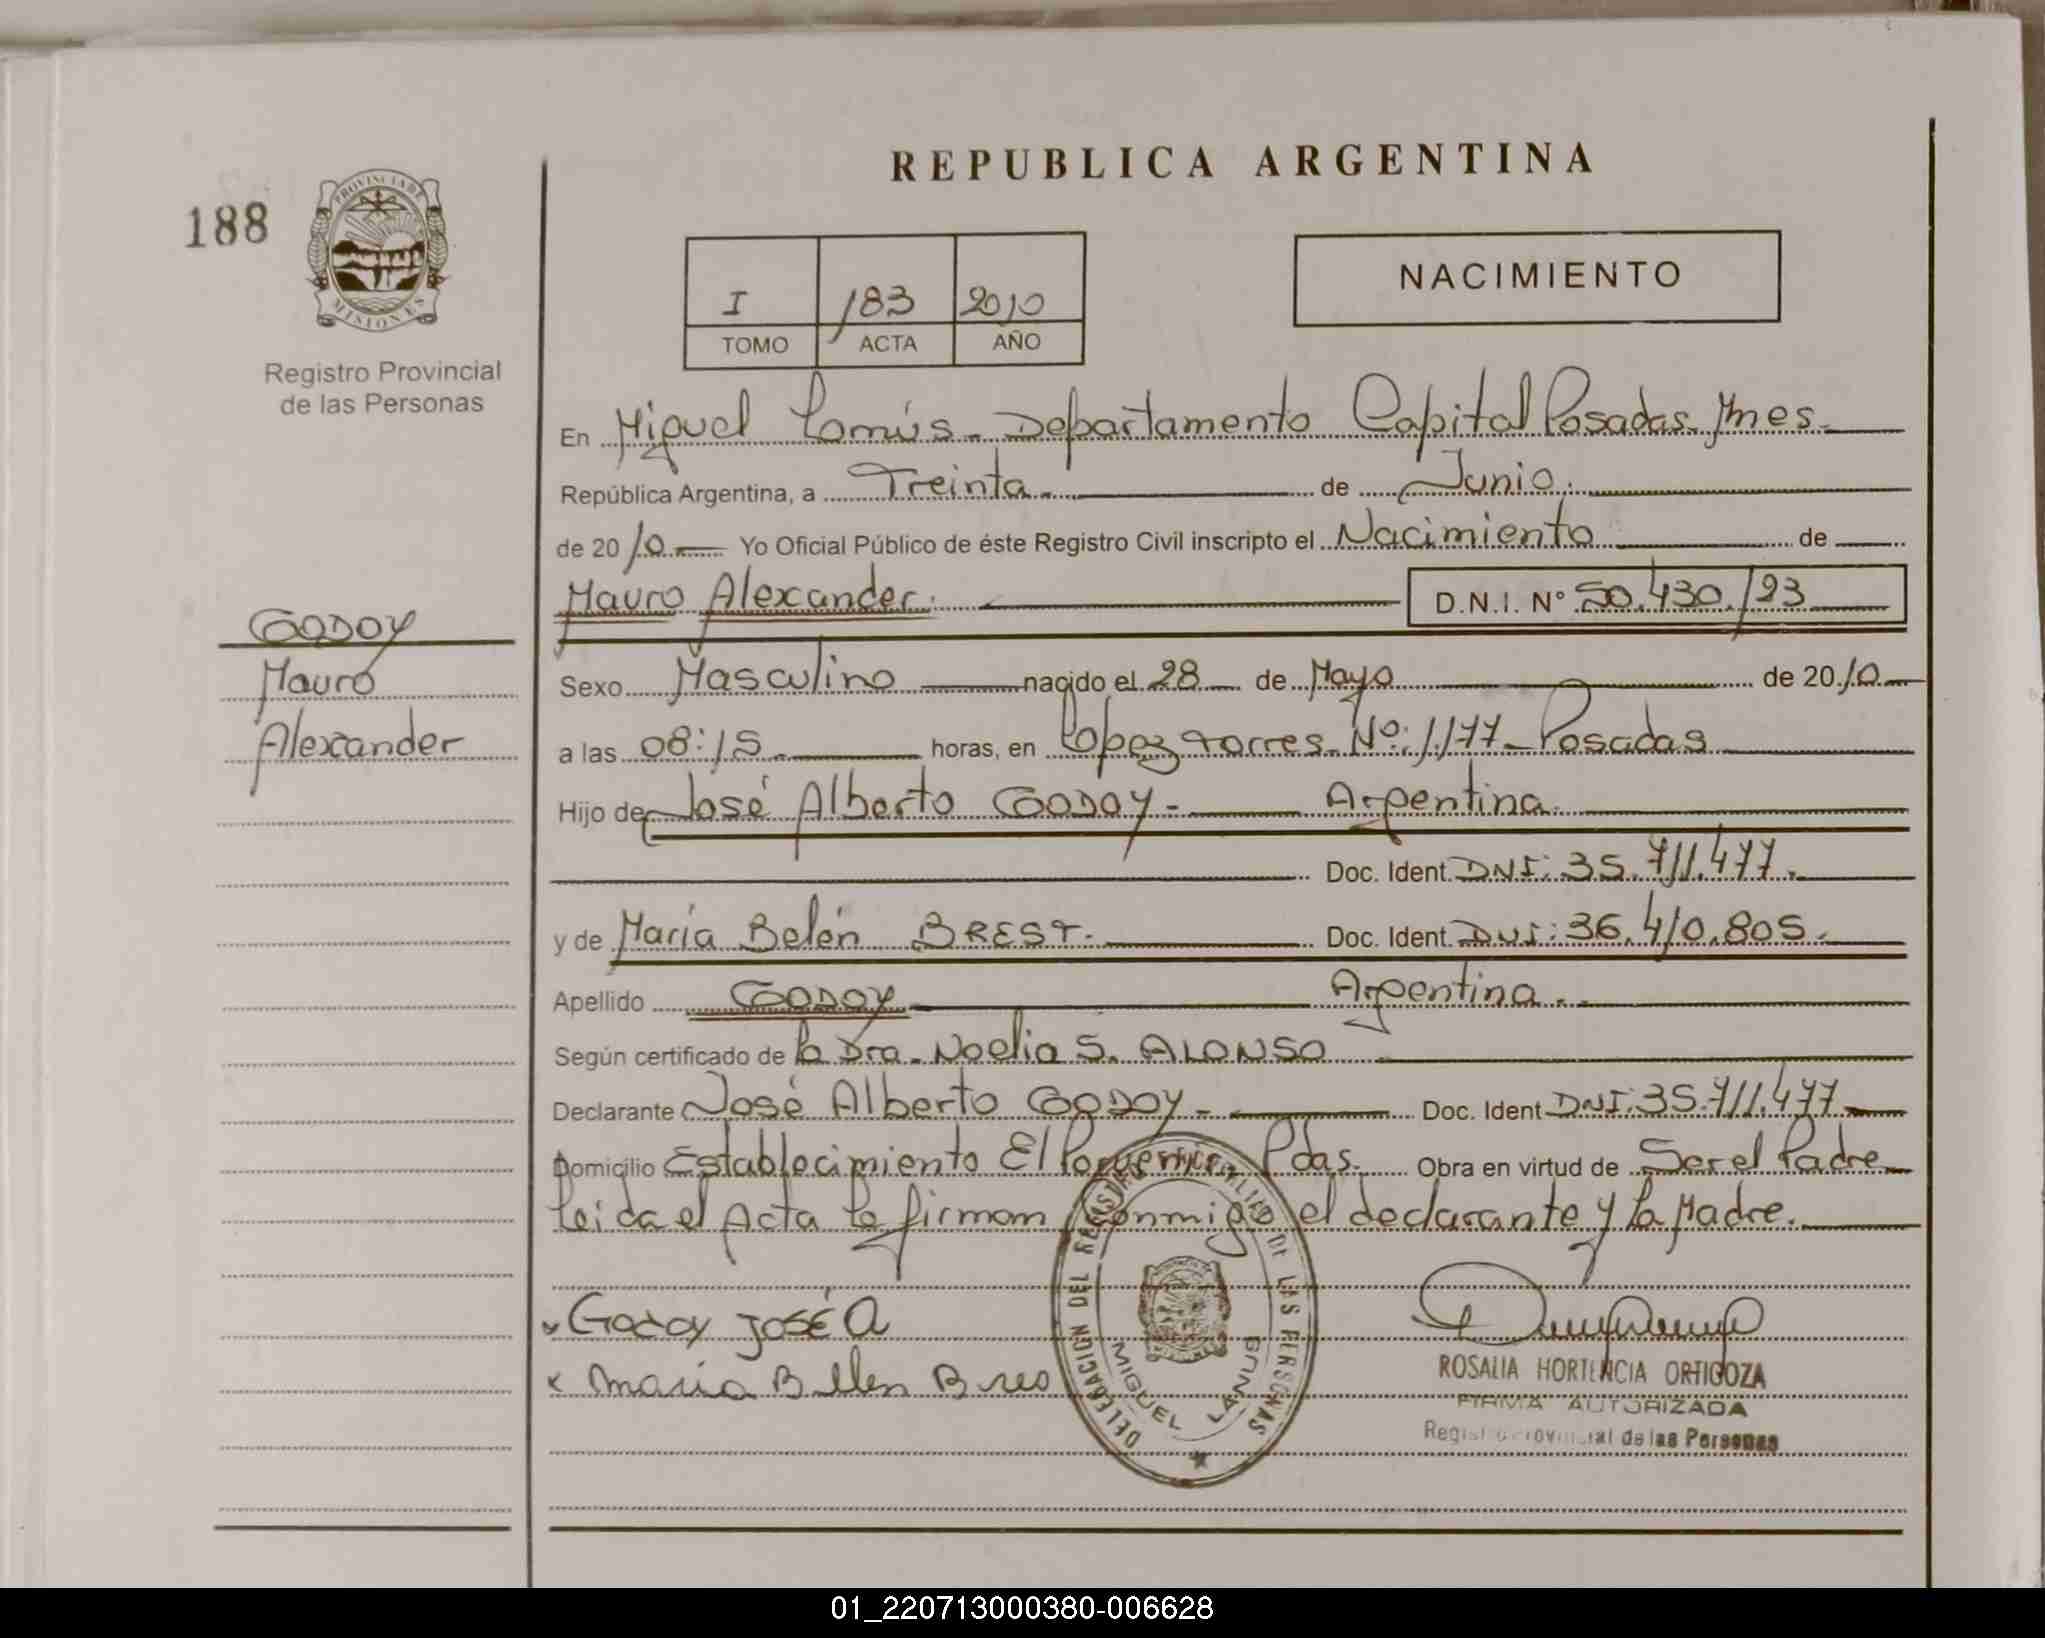 REPUBLICA ARGENTINA
188
PROVINCIA DE
MISIONES
Registro Provincial
de las Personas
I 183 2010
TOMO ACTA AÑO
NACIMIENTO
En Miguel Lanús - Departamento Capital Posadas Mnes.
República Argentina, a Treinta de Junio
de 2010 Yo Oficial Público de éste Registro Civil inscripto el Nacimiento de
Mauro Alexander. D.N.I. Nº 50.430.123
GODOY
Mauro
Alexander
Sexo Masculino nacido el 28 de Mayo de 2010
a las 08:15 horas, en Lopez torres Nº: 1.177 - Posadas
Hijo de José Alberto GODOY - Argentina
Doc. Ident. DNI: 35.711.477.
y de María Belén BREST. Doc. Ident. DNI: 36.410.805.
Apellido GODOY Argentina.
Según certificado de la Dra. Noelia S. ALONSO
Declarante José Alberto GODOY - Doc. Ident DNI: 35.711.477
Domicilio Establecimiento El Porvenir Pdas. Obra en virtud de Ser el Padre
Leida el Acta la firman conmigo el declarante y la Madre.
Godoy José A
Maria Bllen Bres
DELEGACION DEL REGISTRO DE LAS PERSONAS
MIGUEL LANUS
ROSALIA HORTENCIA ORTIGOZA
FIRMA AUTORIZADA
Registro Provincial de las Personas
01_220713000380-006628